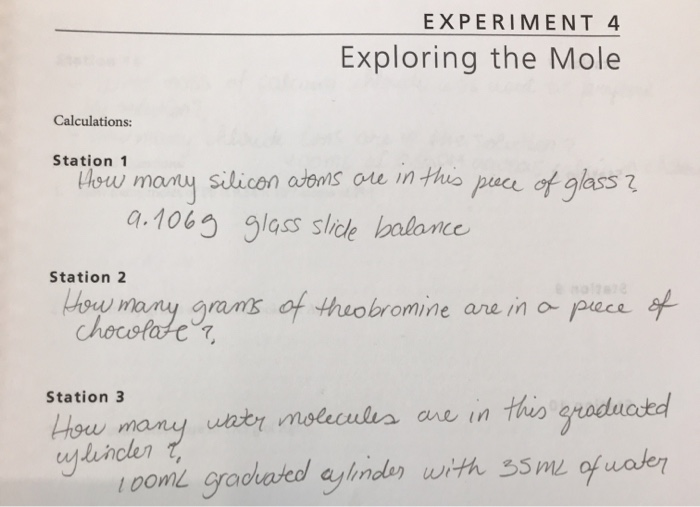 EXPERIMENT 4
Exploring the Mole
Calculations:
Station 1
How many silicon atoms are in this piece of glass?
9.106g glass slide balance
Station 2
How many grams of theobromine are in a piece of
chocolate?
Station 3
How many water molecules are in this graduated
cylinder?
100mL graduated cylinder with 35mL of water